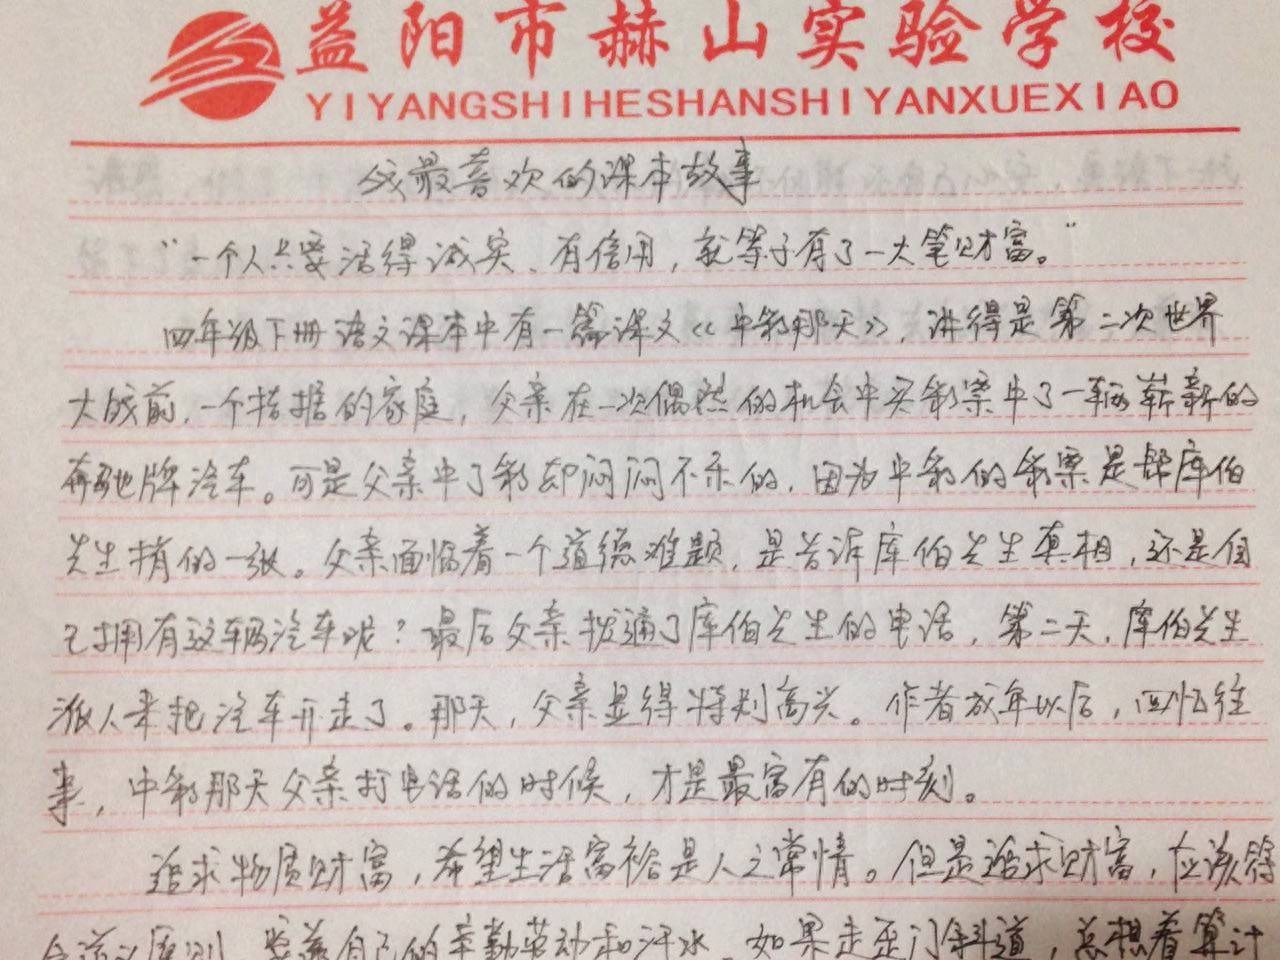 益阳市赫山实验学校
YIYANGSHIHESHANSHIYANXUEXIAO
我最喜欢的课本故事
“一个人只要活得诚实、有信用，就等于有了一大笔财富。”
四年级下册语文课本中有一篇课文《中彩那天》，讲得是第二次世界
大战前，一个拮据的家庭，父亲在一次偶然的机会中买彩票中了一辆崭新的
奔驰牌汽车。可是父亲中了彩却闷闷不乐的，因为中彩的彩票是帮库伯
先生捎的一张。父亲面临着一个道德难题，是告诉库伯先生真相，还是自
己拥有这辆汽车呢？最后父亲拨通了库伯先生的电话，第二天，库伯先生
派人来把汽车开走了。那天，父亲显得特别高兴。作者成年以后，回忆往
事，中彩那天父亲打电话的时候，才是最富有的时刻。
追求物质财富，希望生活富裕是人之常情。但是追求财富，应该符
合道义原则，靠着自己的辛勤劳动和汗水，如果走歪门斜道，总想着算计